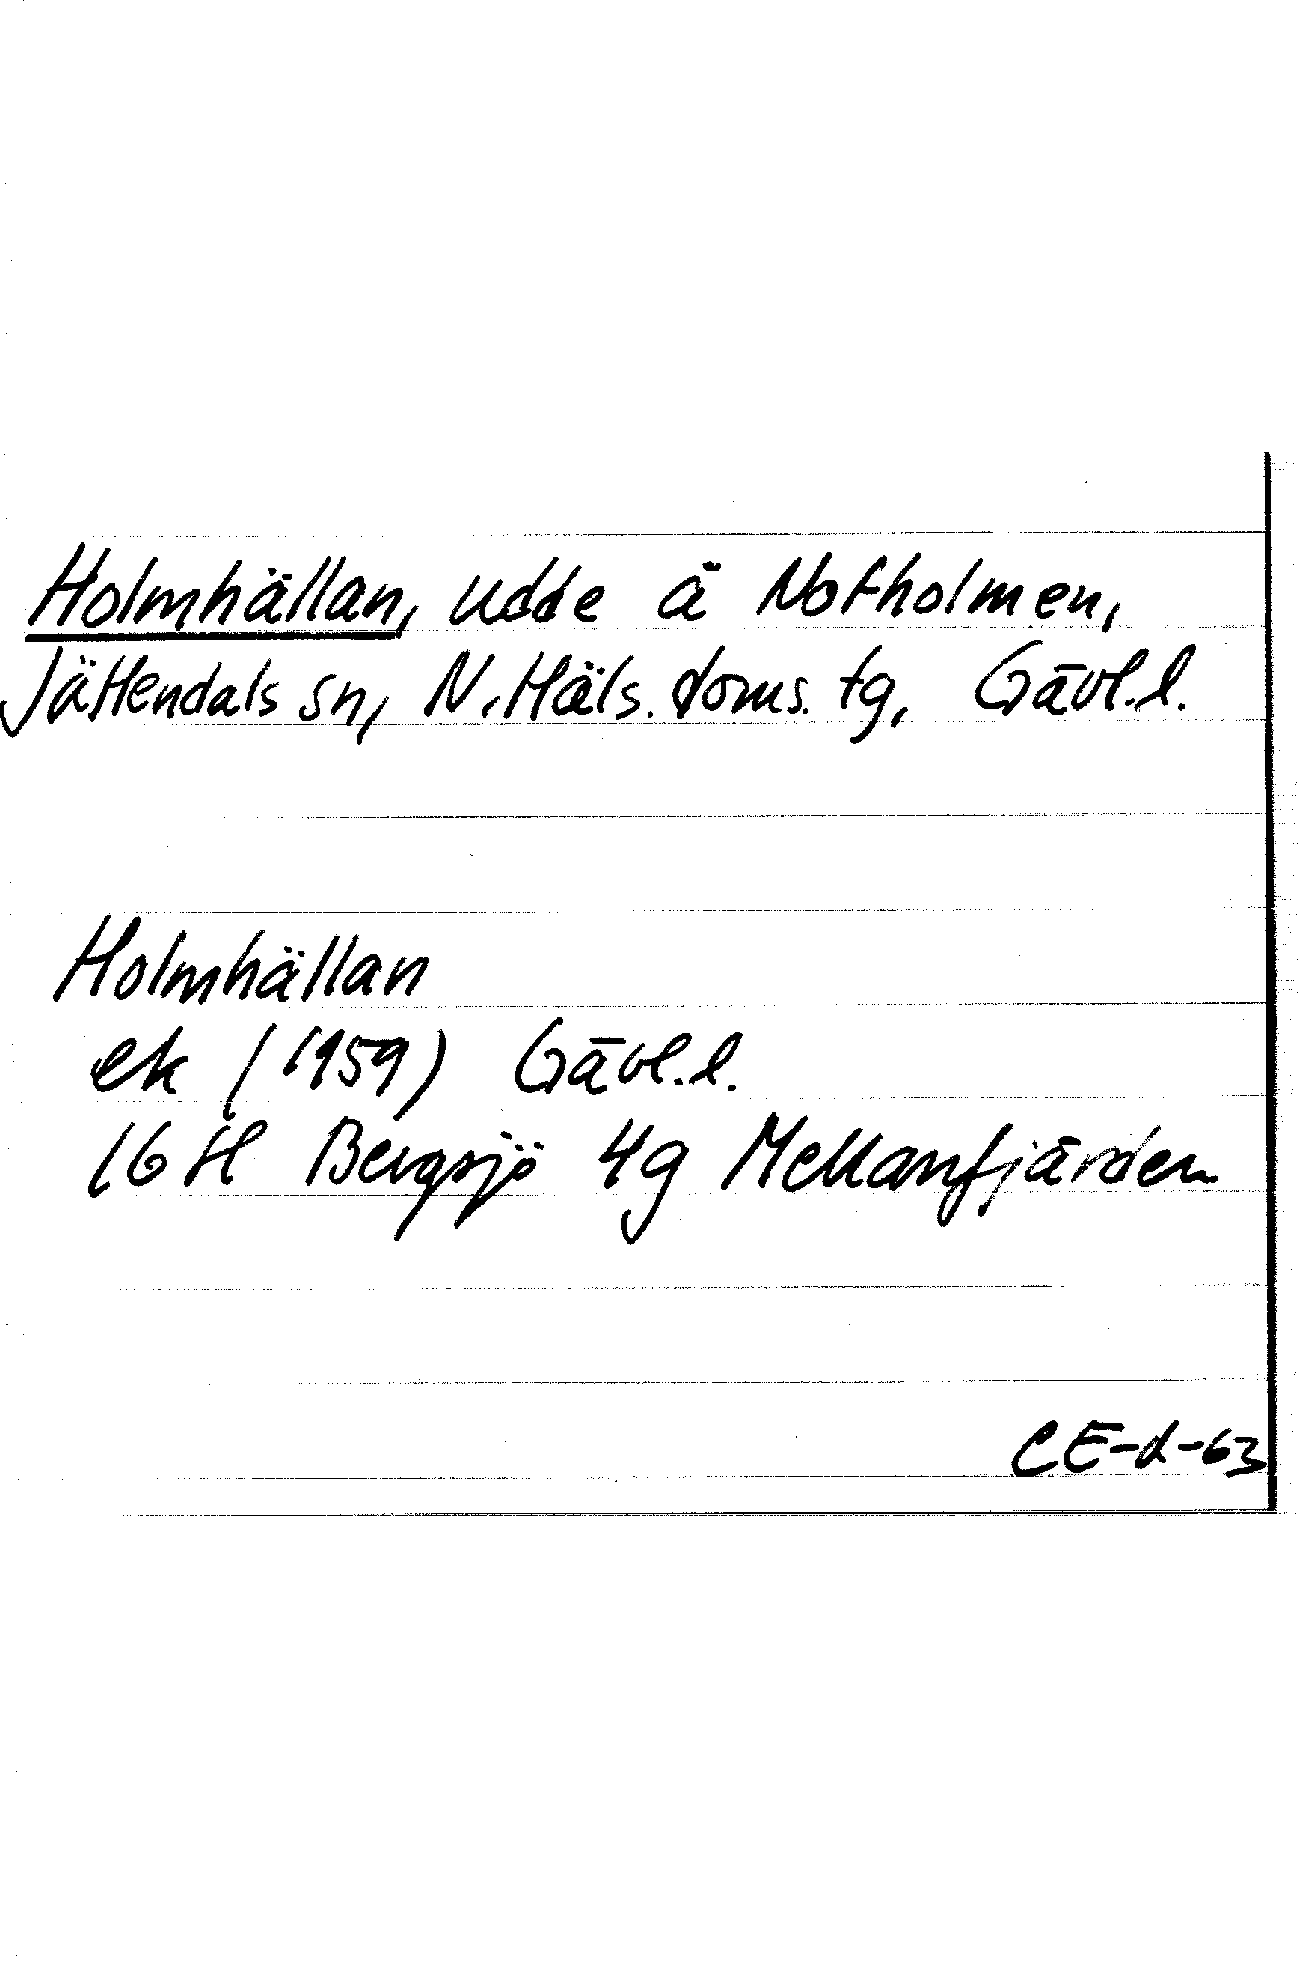 Holmhällan, udde å Notholmen,
Jättendals sn, N. Häls. doms. tg, Gävl. l.
Holmhällan
ek (1959) Gävl. l.
16 H Bergsjö 4g Mellanfjärden
CE-d-63